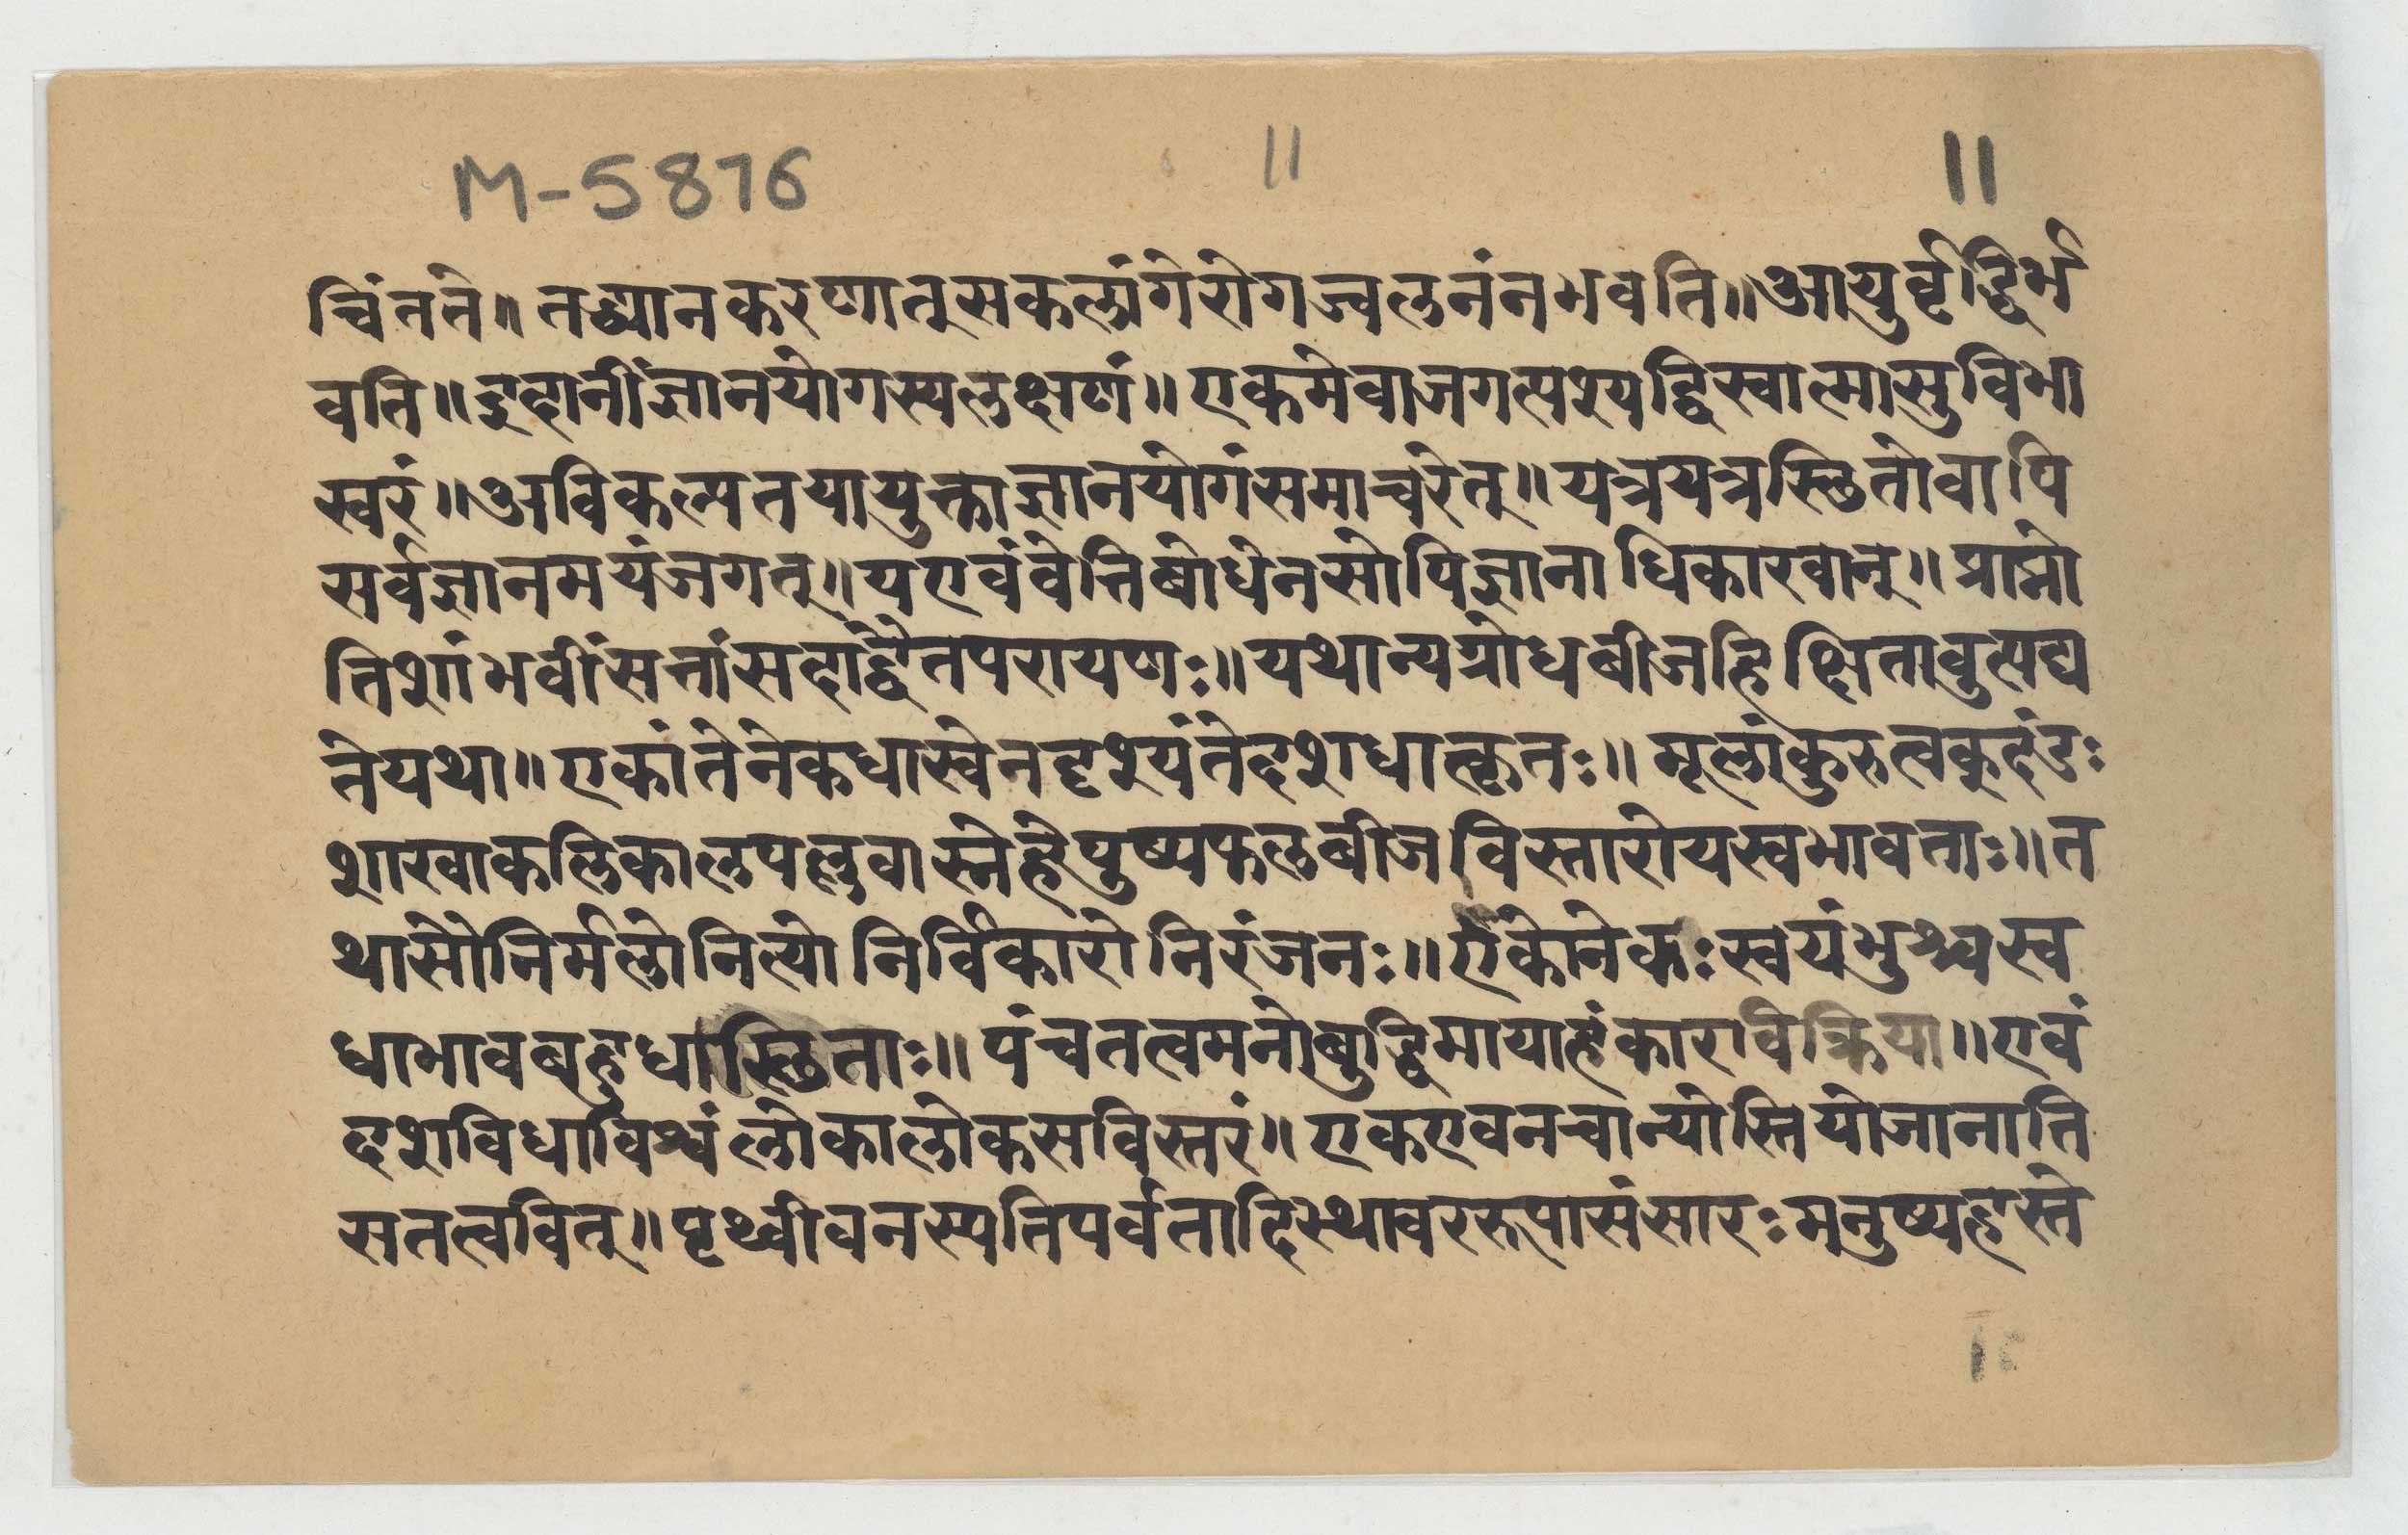 M-5876 11 11
चिंतते॥ तद्ध्यानकरणात्सकलांगेरोगज्वलनंनभवति॥आयुर्वृद्धिर्भ
वति॥इदानींज्ञानयोगस्यलक्षणं॥एकमेवाजगत्पश्यद्धिस्वात्मासुविभा
स्वरं॥अविकल्पतयायुक्ताज्ञानयोगंसमाचरेत्॥यत्रयत्रस्थितोवापि
सर्वज्ञानमयंजगत्॥यएवंवेत्तिबोधेनसोपिज्ञानाधिकारवान्॥प्राप्नो
तिशांभवींसत्तांसदाद्वैतपरायणः॥यथान्यग्रोधबीजहिक्षितावुत्पद्य
तेयथा॥एकांतेनेकधास्वेनदृश्यंतेदशधात्कृतः॥मूलांकुरुत्वकुदंडः
शाखाकलिकालपल्लवास्नेहैपुष्पफलबीजविस्तारोयस्वभावताः॥त
थासौनिर्मलोनित्योनिर्विकारोनिरंजनः॥एंकोनेकःस्वयंभुश्चस्व
धाभावबहुधास्थिताः॥पंचतत्वमनोबुद्धिमायाहंकाराविक्रिया॥एवं
दशविधाविश्वंलोकालोकसविस्तरं॥एकएवनचान्योस्तियोजानाति
सतत्ववित्॥पृथ्वीवनस्पतिपर्वतादिस्थावररूपासंसारःमनुष्यहस्ते